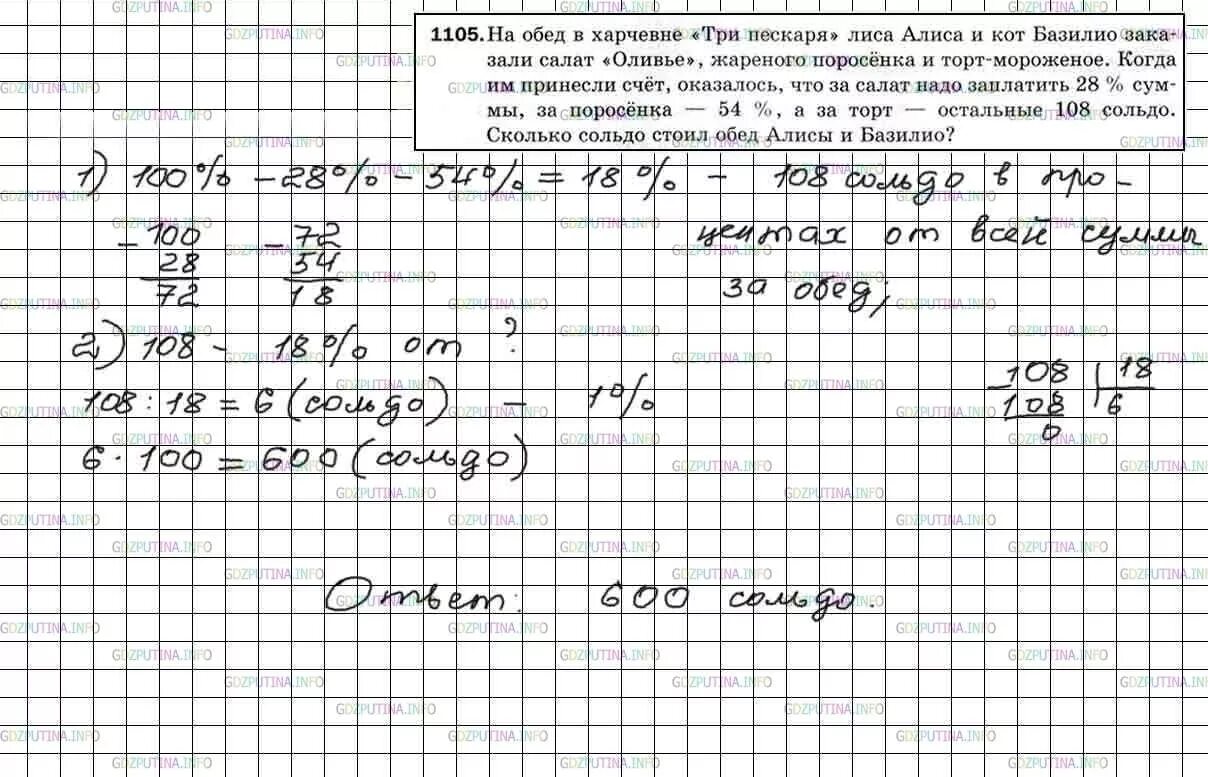 1105. На обед в харчевне «Три пескаря» лиса Алиса и кот Базилио зака-
зали салат «Оливье», жареного поросёнка и торт-мороженое. Когда
им принесли счёт, оказалось, что за салат надо заплатить 28 % сум-
мы, за поросёнка — 54 %, а за торт — остальные 108 сольдо.
Сколько сольдо стоил обед Алисы и Базилио?
1) 100% - 28% - 54% = 18% - 108 сольдо в про-
центах от всей суммы
за обед;
- 100
28
72
- 72
54
18
2) 108 - 18% от ?
108 : 18 = 6 (сольдо) - 1%
6 · 100 = 600 (сольдо)
- 108 | 18
108 6
0
Ответ: 600 сольдо.
GDZPUTINA.INFO